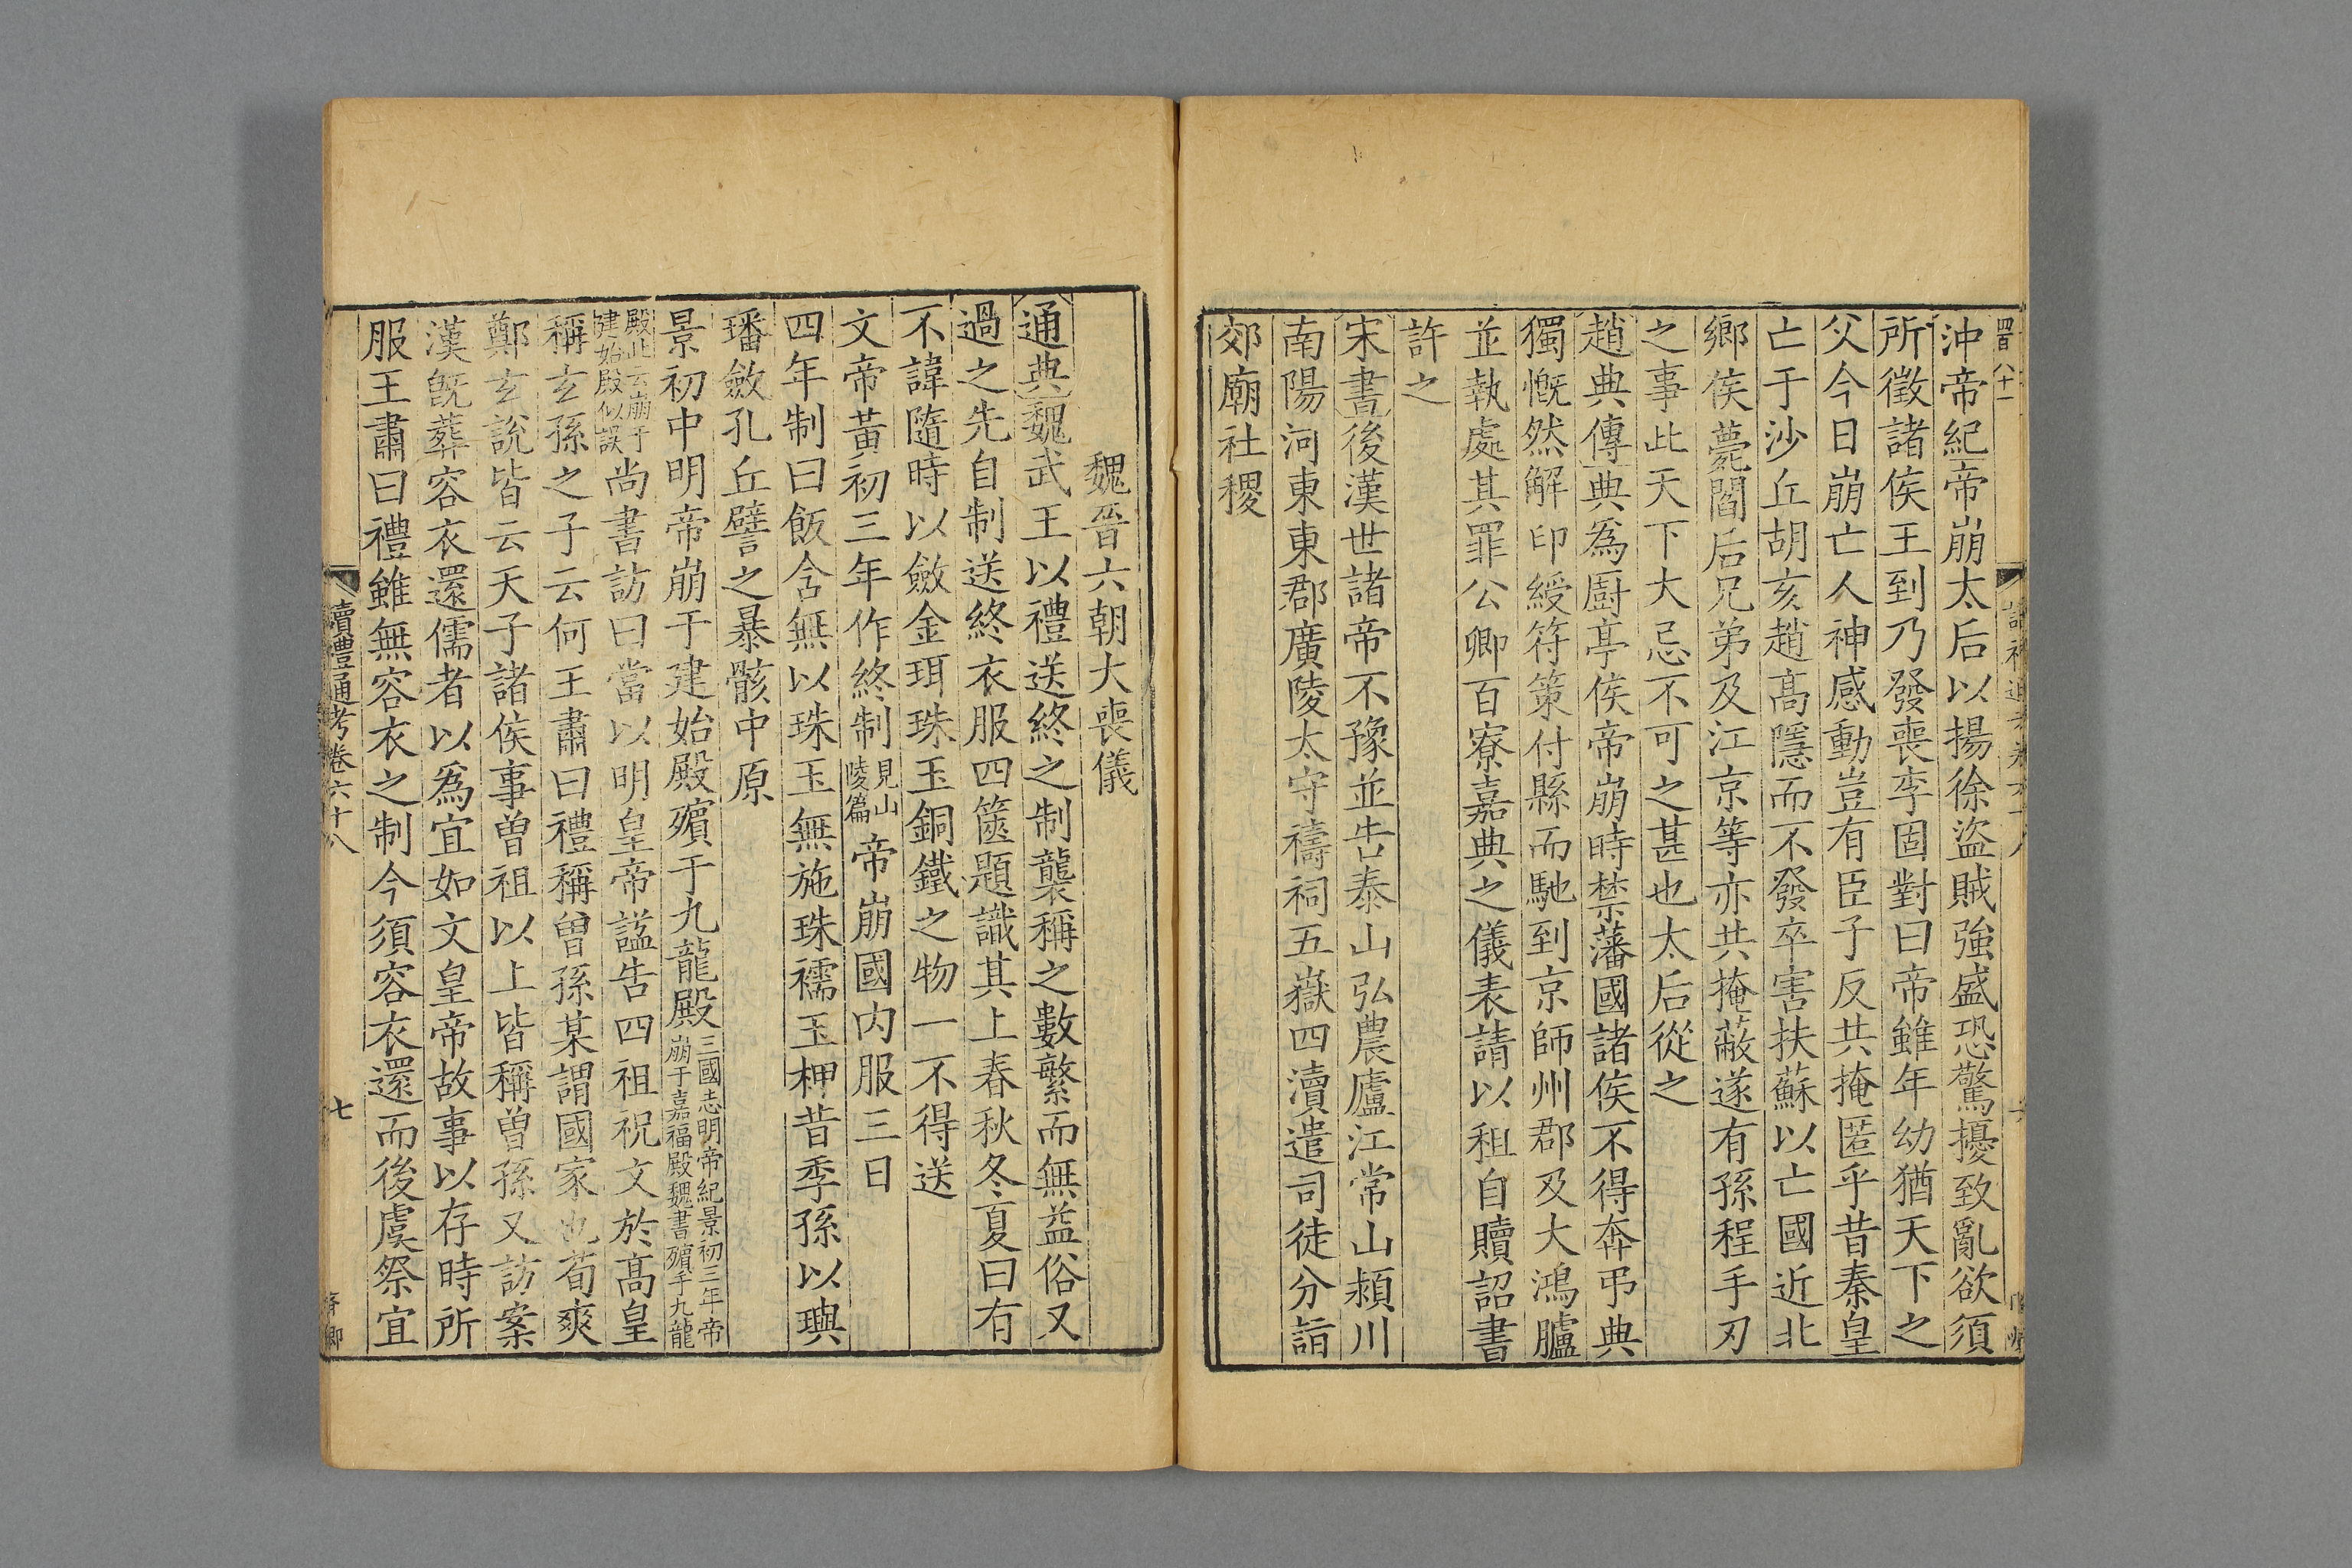 四百八十一
沖帝紀帝崩太后以揚徐盜賊強盛恐驚擾致亂欲須
所徵諸侯王到乃發喪李固對曰帝雖年幼猶天下之
父今日崩亡人神感動豈有臣子反共掩匿乎昔秦皇
亡于沙丘胡亥趙高隱而不發卒害扶蘇以亡國近北
鄉侯薨閻后兄弟及江京等亦共掩蔽遂有孫程手刃
之事此天下大忌不可之甚也太后從之
趙典傳典爲廚亭侯帝崩時禁藩國諸侯不得奔弔典
獨慨然解印綬符策付縣而馳到京師州郡及大鴻臚
並執處其罪公卿百寮嘉典之儀表請以租自贖詔書
許之
宋書後漢世諸帝不豫並告泰山弘農廬江常山潁川
南陽河東東郡廣陵太守禱祠五嶽四瀆遣司徒分詣
郊廟社稷
魏晉六朝大喪儀
通典魏武王以禮送終之制襲稱之數繁而無益俗又
過之先自制送終衣服四篋題識其上春秋冬夏曰有
不諱隨時以斂金珥珠玉銅鐵之物一不得送
文帝黃初三年作終制見山陵篇帝崩國內服三日
四年制曰飯含無以珠玉無施珠襦玉柙昔季孫以璵
璠斂孔丘譬之暴骸中原
景初中明帝崩于建始殿殯于九龍殿三國志明帝紀景初三年帝崩于嘉福殿魏書殯于九龍
殿此云崩于建始殿似誤尚書訪曰當以明皇帝謚告四祖祝文於高皇
稱玄孫之子云何王肅曰禮稱曾孫某謂國家也荀爽
鄭玄說皆云天子諸侯事曾祖以上皆稱曾孫又訪案
漢旣葬容衣還儒者以爲宜如文皇帝故事以存時所
服王肅曰禮雖無容衣之制今須容衣還而後虞祭宜
讀禮通考卷六十八
七